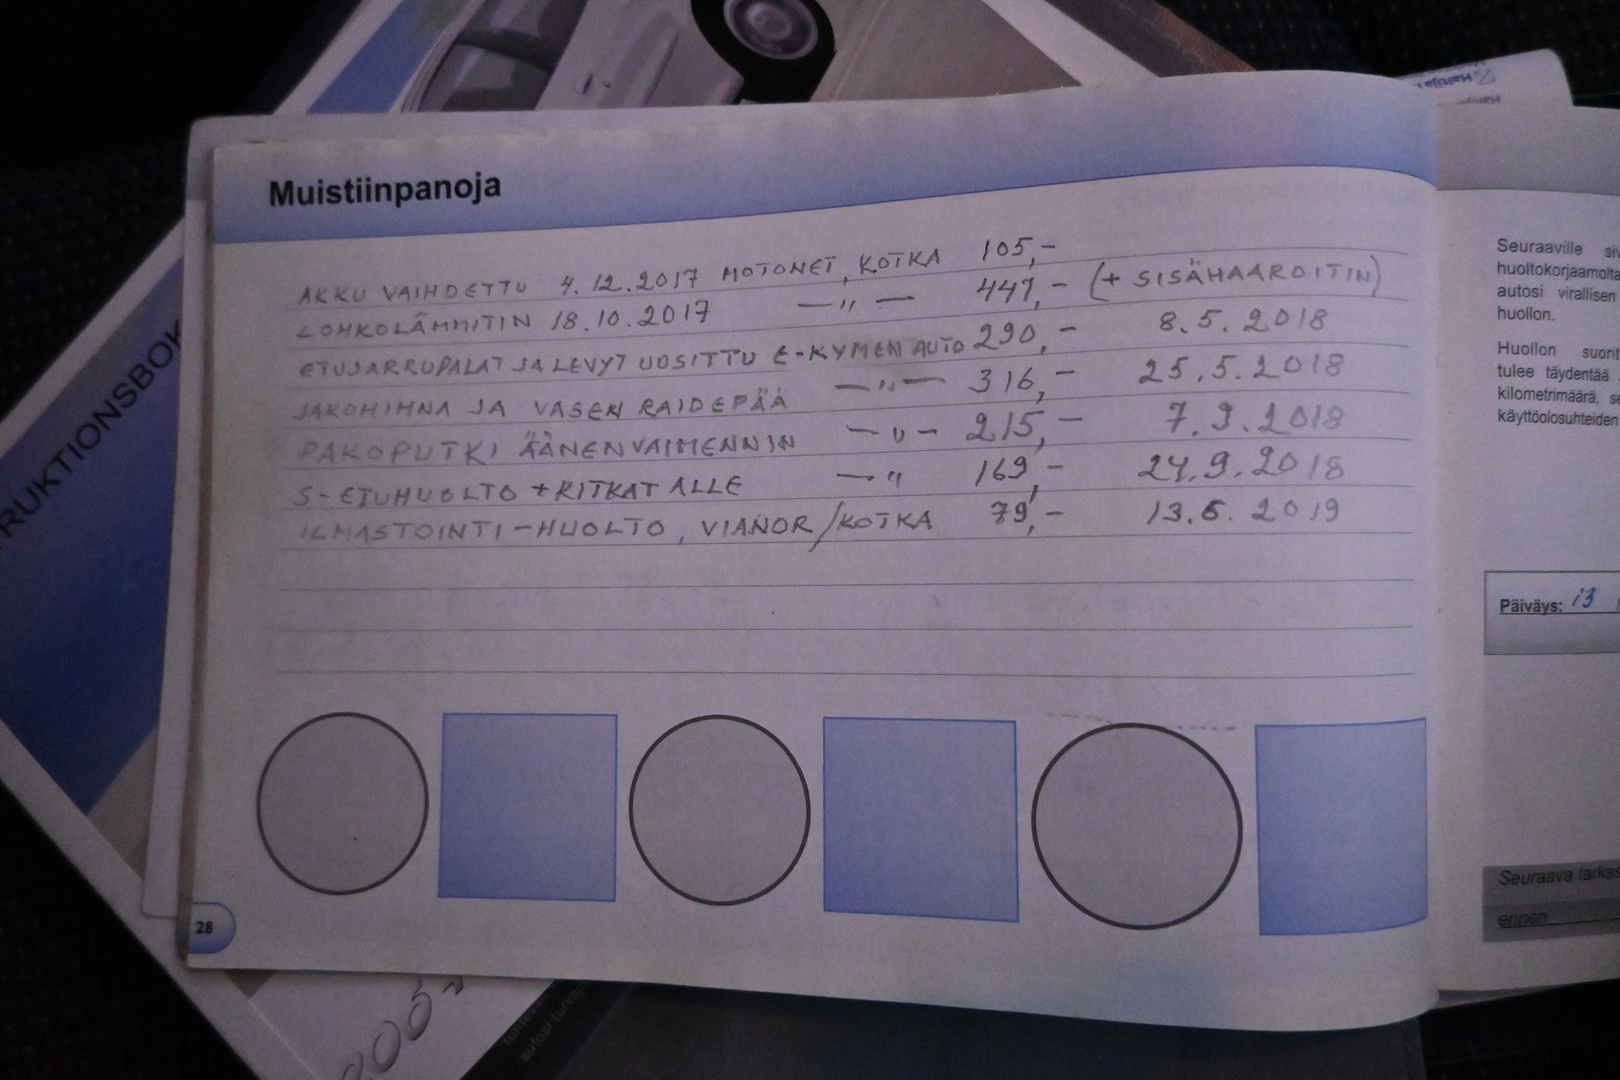 Muistiinpanoja
AKKU VAIHDETTU 4.12.2017 MOTONET, KOTKA 105,-
LOHKOLÄMMITIN 18.10.2017 —〃— 447,- (+ SISÄHAAROITIN)
ETUJARRUPALAT JA LEVYT UUSITTU E-KYMEN AUTO 290,- 8.5.2018
JAKOHIHNA JA VASEN RAIDEPÄÄ —〃— 316,- 25.5.2018
PAKOPUTKI ÄÄNENVAIMENNIN —〃— 215,- 7.9.2018
S-ETUHUOLTO + KITKAT ALLE —〃 169,- 24.9.2018
ILMASTOINTI-HUOLTO, VIANOR/KOTKA 79,- 13.6.2019
28
RUKTIONSBOK
Seuraaville
huoltokorjaamolta
autosi virallisen
huollon.
Huollon
tulee täydentää
kilometrimäärä,
käyttöolosuhteiden
Päiväys: 13
Seuraava
ennen